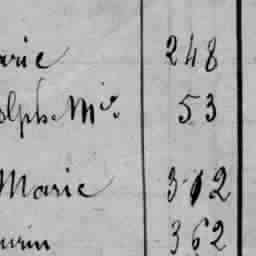 arie 248
olph. Mie. 53
Marie 312
urin 362